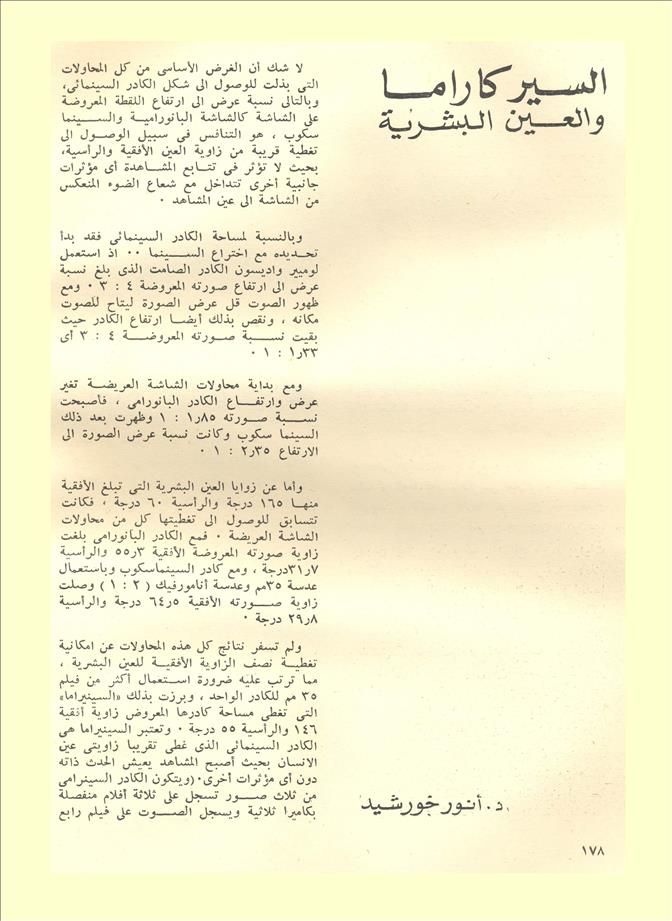 السيركاراما
والعين البشرية
لا شك أن الغرض الأساسى من كل المحاولات
التى بذلت للوصول الى شكل الكادر السينمائى،
وبالتالى نسبة عرض الى ارتفاع اللقطة المعروضة
على الشاشة كالشاشة البانورامية والسينما
سكوب ، هو التنافس فى سبيل الوصول الى
تغطية قريبة من زاوية العين الأفقية والرأسية،
بحيث لا تؤثر فى تتابع المشاهدة أى مؤثرات
جانبية أخرى تتداخل مع شعاع الضوء المنعكس
من الشاشة الى عين المشاهد ٠
وبالنسبة لمساحة الكادر السينمائى فقد بدأ
تحديده مع اختراع السينما ٠٠ اذ استعمل
لوميير واديسون الكادر الصامت الذى بلغ نسبة
عرض الى ارتفاع صورته المعروضة ٤ : ٣ ٠ ومع
ظهور الصوت قل عرض الصورة ليتاح للصوت
مكانه ، ونقص بذلك أيضا ارتفاع الكادر حيث
بقيت نسبة صورته المعروضة ٤ : ٣ أى
٣٣ر١ : ١ ٠
ومع بداية محاولات الشاشة العريضة تغير
عرض وارتفاع الكادر البانورامى ، فاصبحت
نسبة صورته ٨٥ر١ : ١ وظهرت بعد ذلك
السينما سكوب وكانت نسبة عرض الصورة الى
الارتفاع ٣٥ر٢ : ١ ٠
وأما عن زوايا العين البشرية التى تبلغ الأفقية
منها ١٦٥ درجة والرأسية ٦٠ درجة ، فكانت
تتسابق للوصول الى تغطيتها كل من محاولات
الشاشة العريضة ٠ فمع الكادر البانورامى بلغت
زاوية صورته المعروضة الأفقية ٣ر٥٥ والرأسية
٧ر٣١درجة ، ومع كادر السينماسكوب وباستعمال
عدسة ٣٥مم وعدسة أنامورفيك ( ٢ : ١ ) وصلت
زاوية صورته الأفقية ٥ر٦٤ درجة والرأسية
٨ر٢٩ درجة ٠
ولم تسفر نتائج كل هذه المحاولات عن امكانية
تغطية نصف الزاوية الأفقية للعين البشرية ،
مما ترتب عليه ضرورة استعمال أكثر من فيلم
٣٥ مم للكادر الواحد ، وبرزت بذلك «السينيراما»
التى تغطى مساحة كادرها المعروض زاوية أفقية
١٤٦ والرأسية ٥٥ درجة ٠ وتعتبر السينيراما هى
الكادر السينمائى الذى غطى تقريبا زاويتى عين
الانسان بحيث أصبح المشاهد يعيش الحدث ذاته
دون أى مؤثرات أخرى٠(ويتكون الكادر السينرامى
من ثلاث صور تسجل على ثلاثة أفلام منفصلة
بكاميرا ثلاثية ويسجل الصوت على فيلم رابع
د. أنور خورشيد
١٧٨